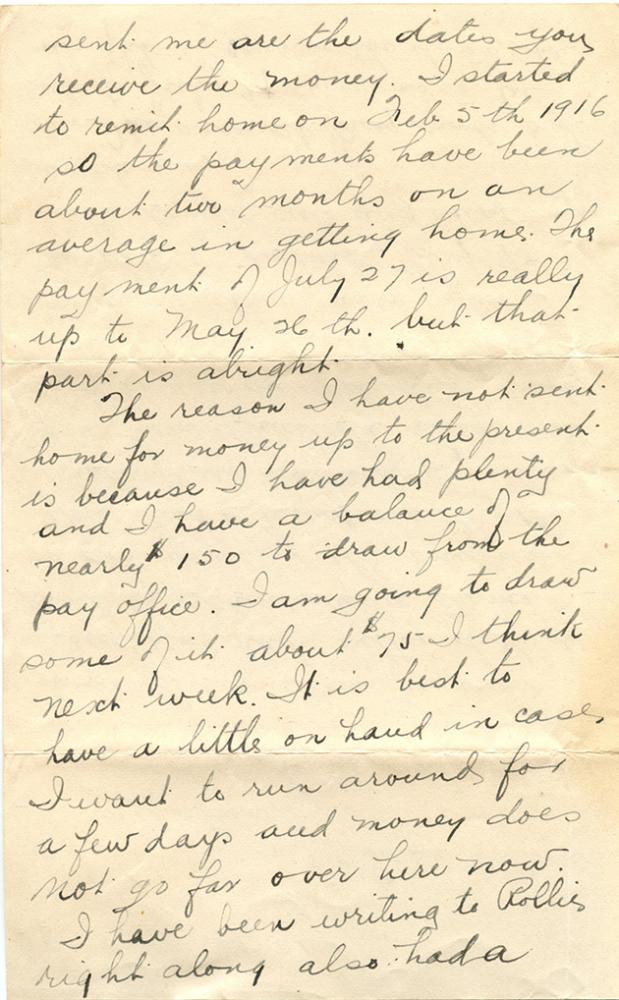 sent me are the dates you
receive the money. I started
to remit home on Feb 5th 1916
so the payments have been
about two months on an
average in getting home. The
payment of July 27 is really
up to May 26th. but that
part is alright.
The reason I have not sent
home for money up to the present
is because I have had plenty
and I have a balance of
nearly $150 to draw from the
pay office. I am going to draw
some of it about $75 I think
next week. It is best to
have a little on hand in case
I want to run around for
a few days and money does
not go far over here now.
I have been writing to Rollie
right along also had a